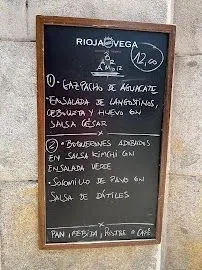 RIOJA VEGA
12,00
BAR
AMOR
1) · GAZPACHO DE AGUACATE
- ENSALADA DE LANGOSTINOS,
CEBOLLITA Y HUEVO CON
SALSA CÉSAR
2) · BOQUERONES ADOBADOS
EN SALSA KIMCHI CON
ENSALADA VERDE
- SOLOMILLO DE PAVO CON
SALSA DE DÁTILES
PAN, BEBIDA, POSTRE O CAFÉ